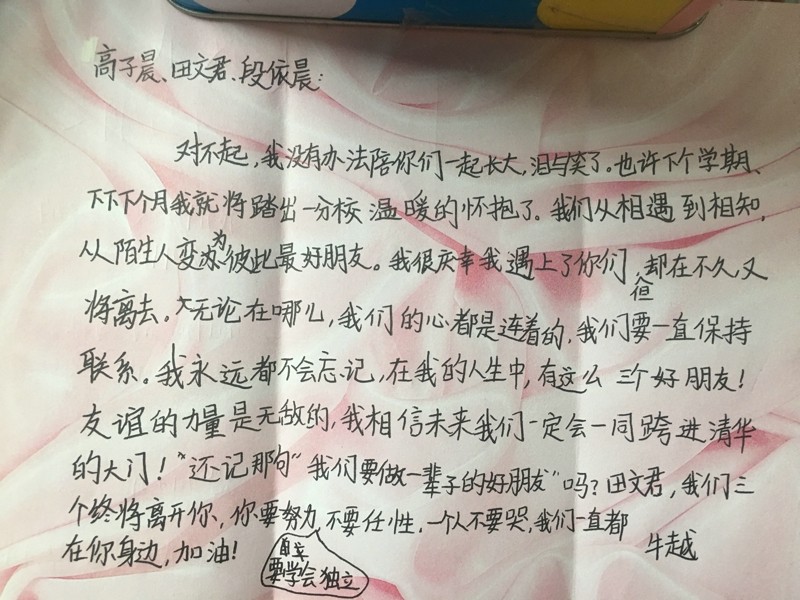 高子晨、田文君、段依晨:
对不起,我没有办法陪你们一起长大,泪与笑了。也许下个学期、
下下下个月我就将踏出一分校温暖的怀抱了。我们从相遇到相知,
从陌生人变为彼此最好朋友。我很庆幸我遇上了你们,但却在不久又
将离去。无论在哪儿,我们的心都是连着的,我们要一直保持
联系。我永远都不会忘记,在我的人生中,有这么三个好朋友!
友谊的力量是无敌的,我相信未来我们一定会一同跨进清华
的大门!还记那句“我们要做一辈子的好朋友”吗?田文君,我们三
个终将离开你,你要努力,不要任性,一个人不要哭,我们一直都
在你身边,加油!
要学会独立
牛越